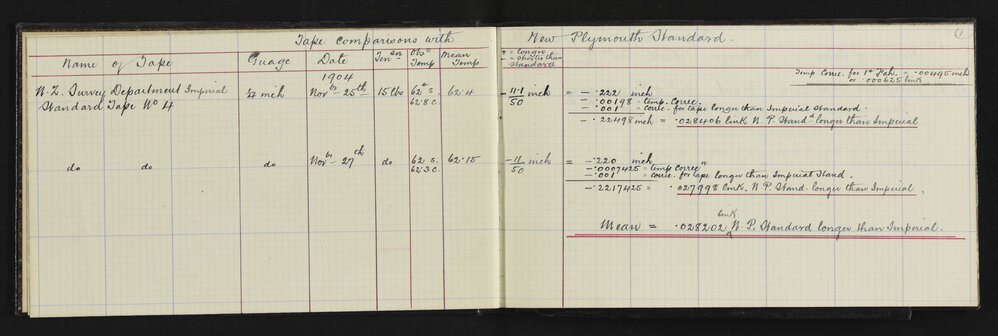 Tape Comparisons with New Plymouth Standard.
1
Temp Correc. for 1° Fah. = .00495 inch
or .000625 link
Name of Tape Guage Date Ten en Obs d Temp Mean Temp + = longer - = shorter than Standard
1904
N.Z. Survey Department Imperial Standard Tape No 4
1/4 inch Novbr 25th 15 lbs 62° S. 62.8 C. 62.4 - 11.1/50 inch = - .222 inch
- .00198 = temp. Correc.
- .001 = correc. for tape longer than Imperial Standard.
- .22498 inch = .028406 link N.P. Standd longer than Imperial
do do do Novbr 27th do 62 S. 62.3 C. 62.15 - 11/50 inch = - .220 inch
- .0007425 = temp Correcn
- .001 = correc. for tape longer than Imperial Stand.
- .2217425 = .027998 link. N.P. Stand. longer than Imperial.
Mean = .028202 link N.P. Standard longer than Imperial.